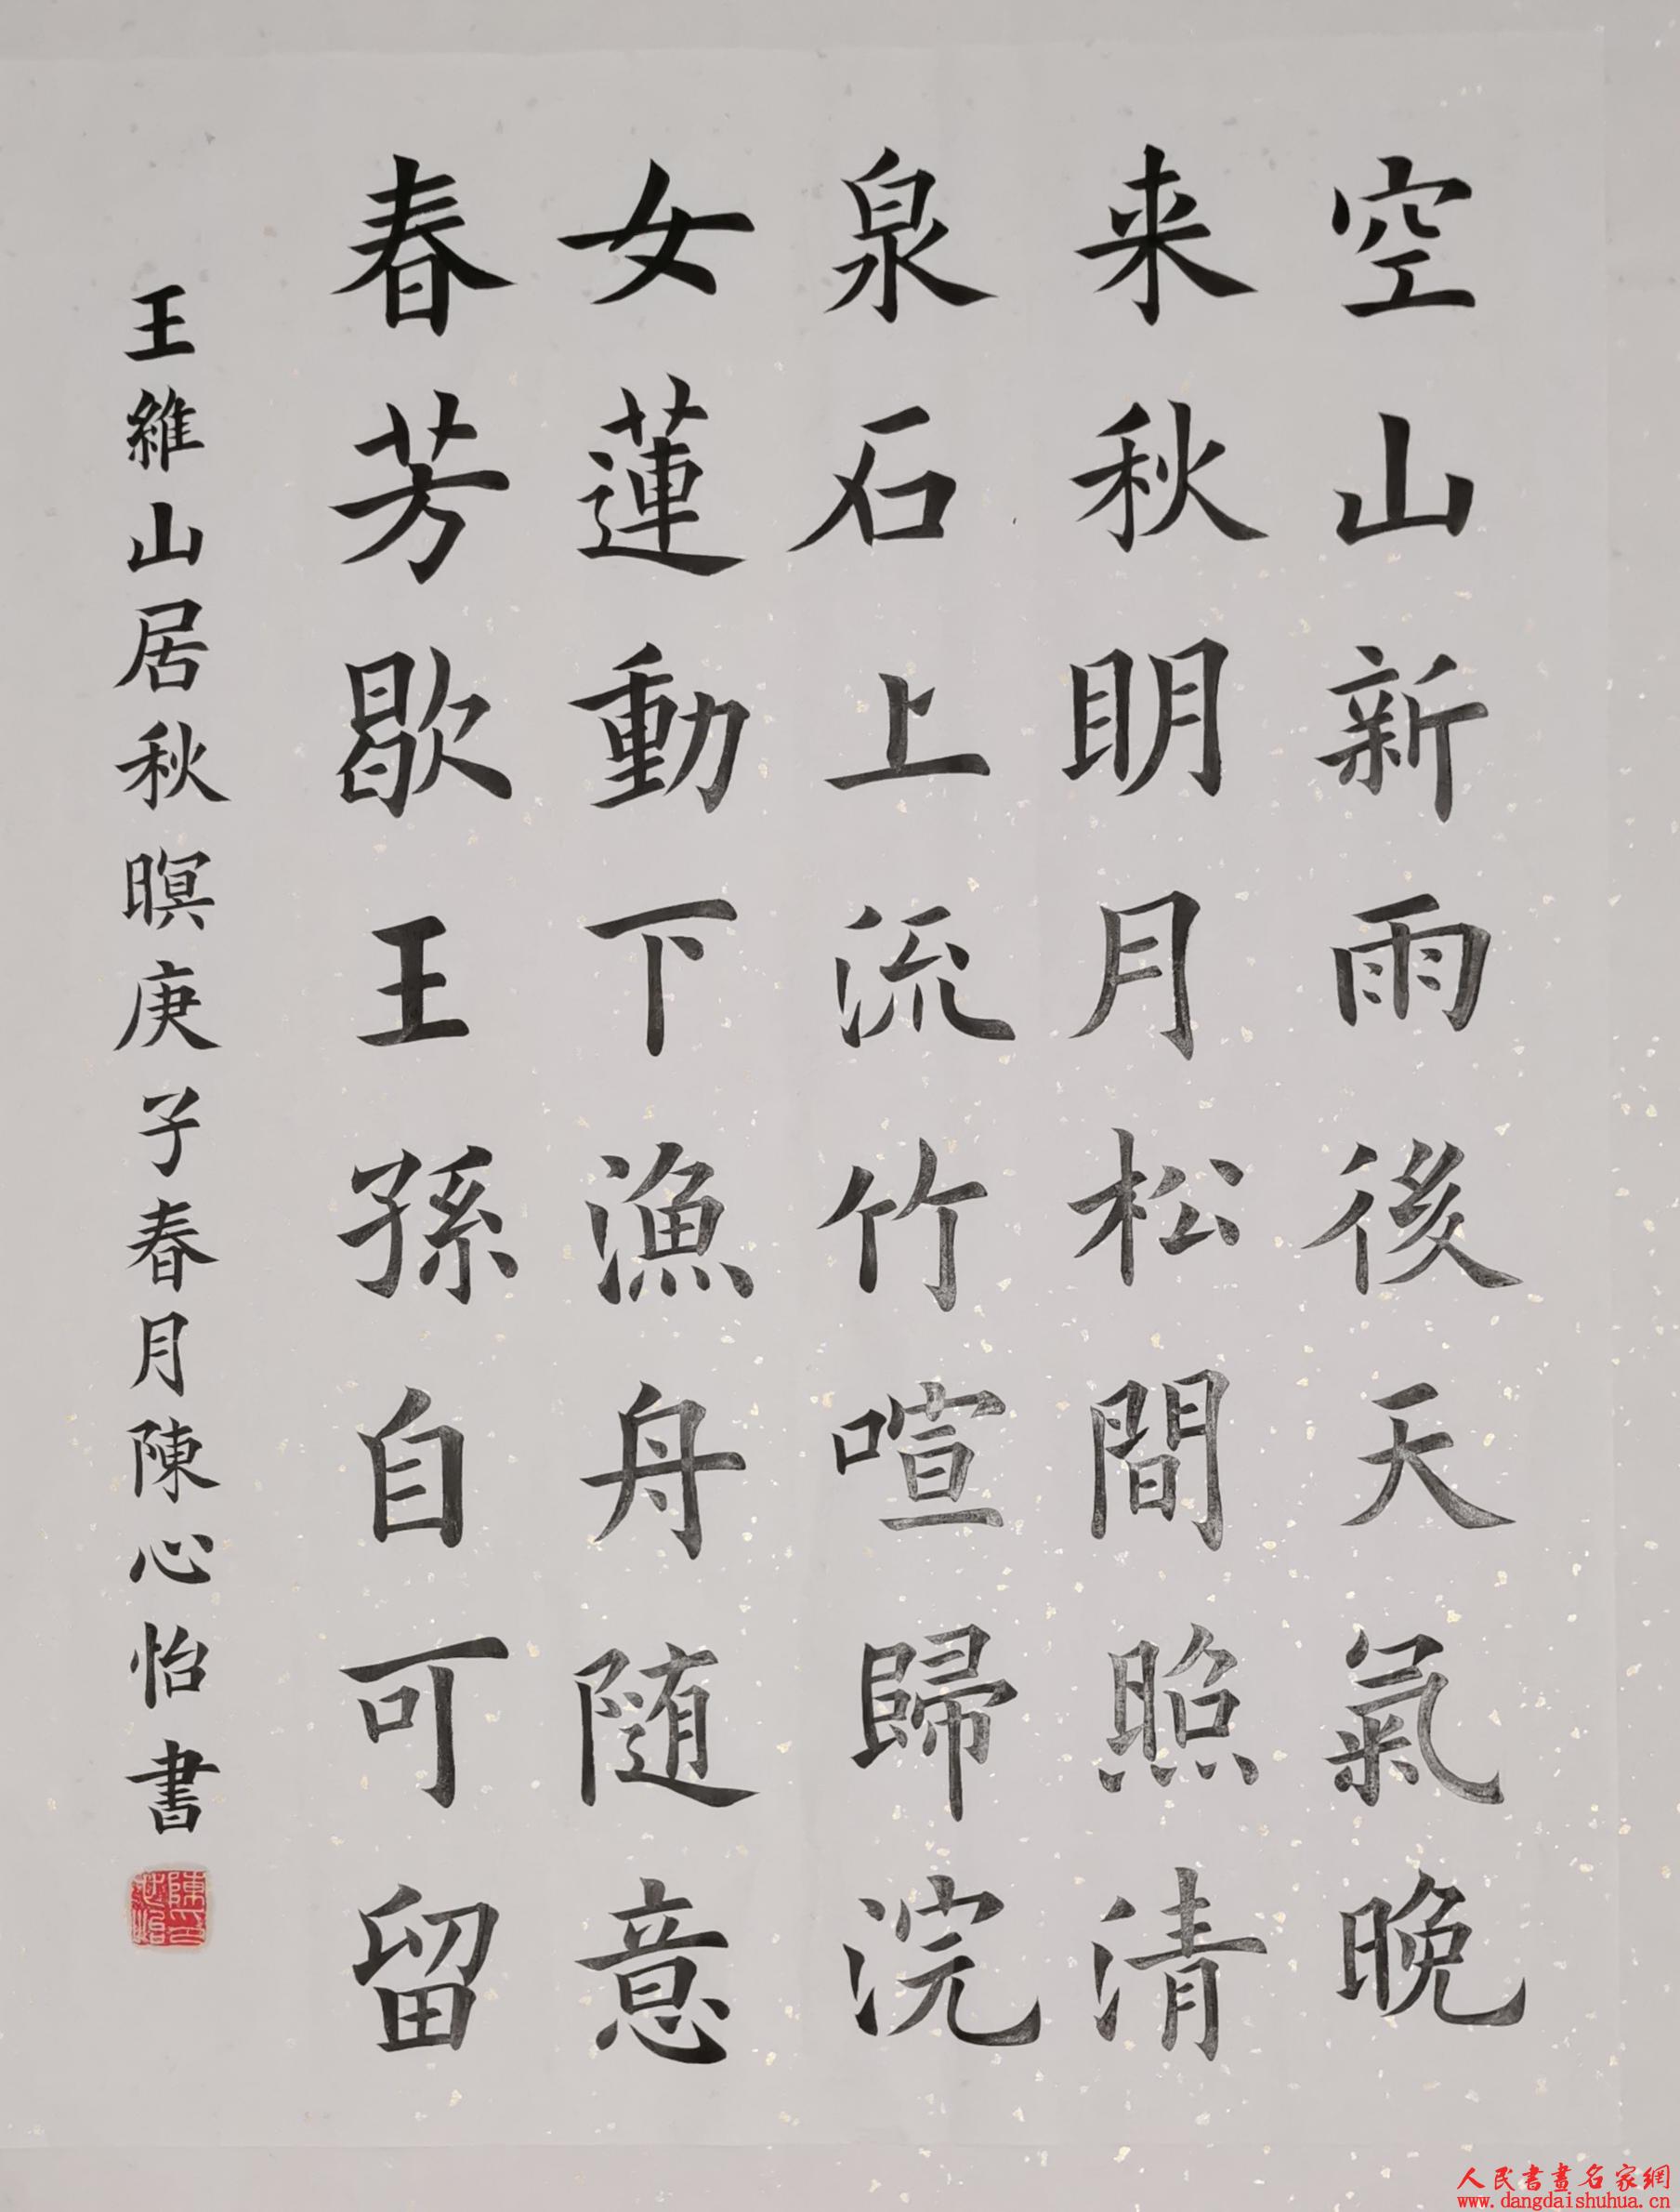 空山新雨後天氣晚
来秋明月松間照清
泉石上流竹喧歸浣
女蓮動下漁舟随意
春芳歇王孫自可留
王維山居秋暝庚子春月陳心怡書
人民書畫名家網
www.dangdaishuhua.cn